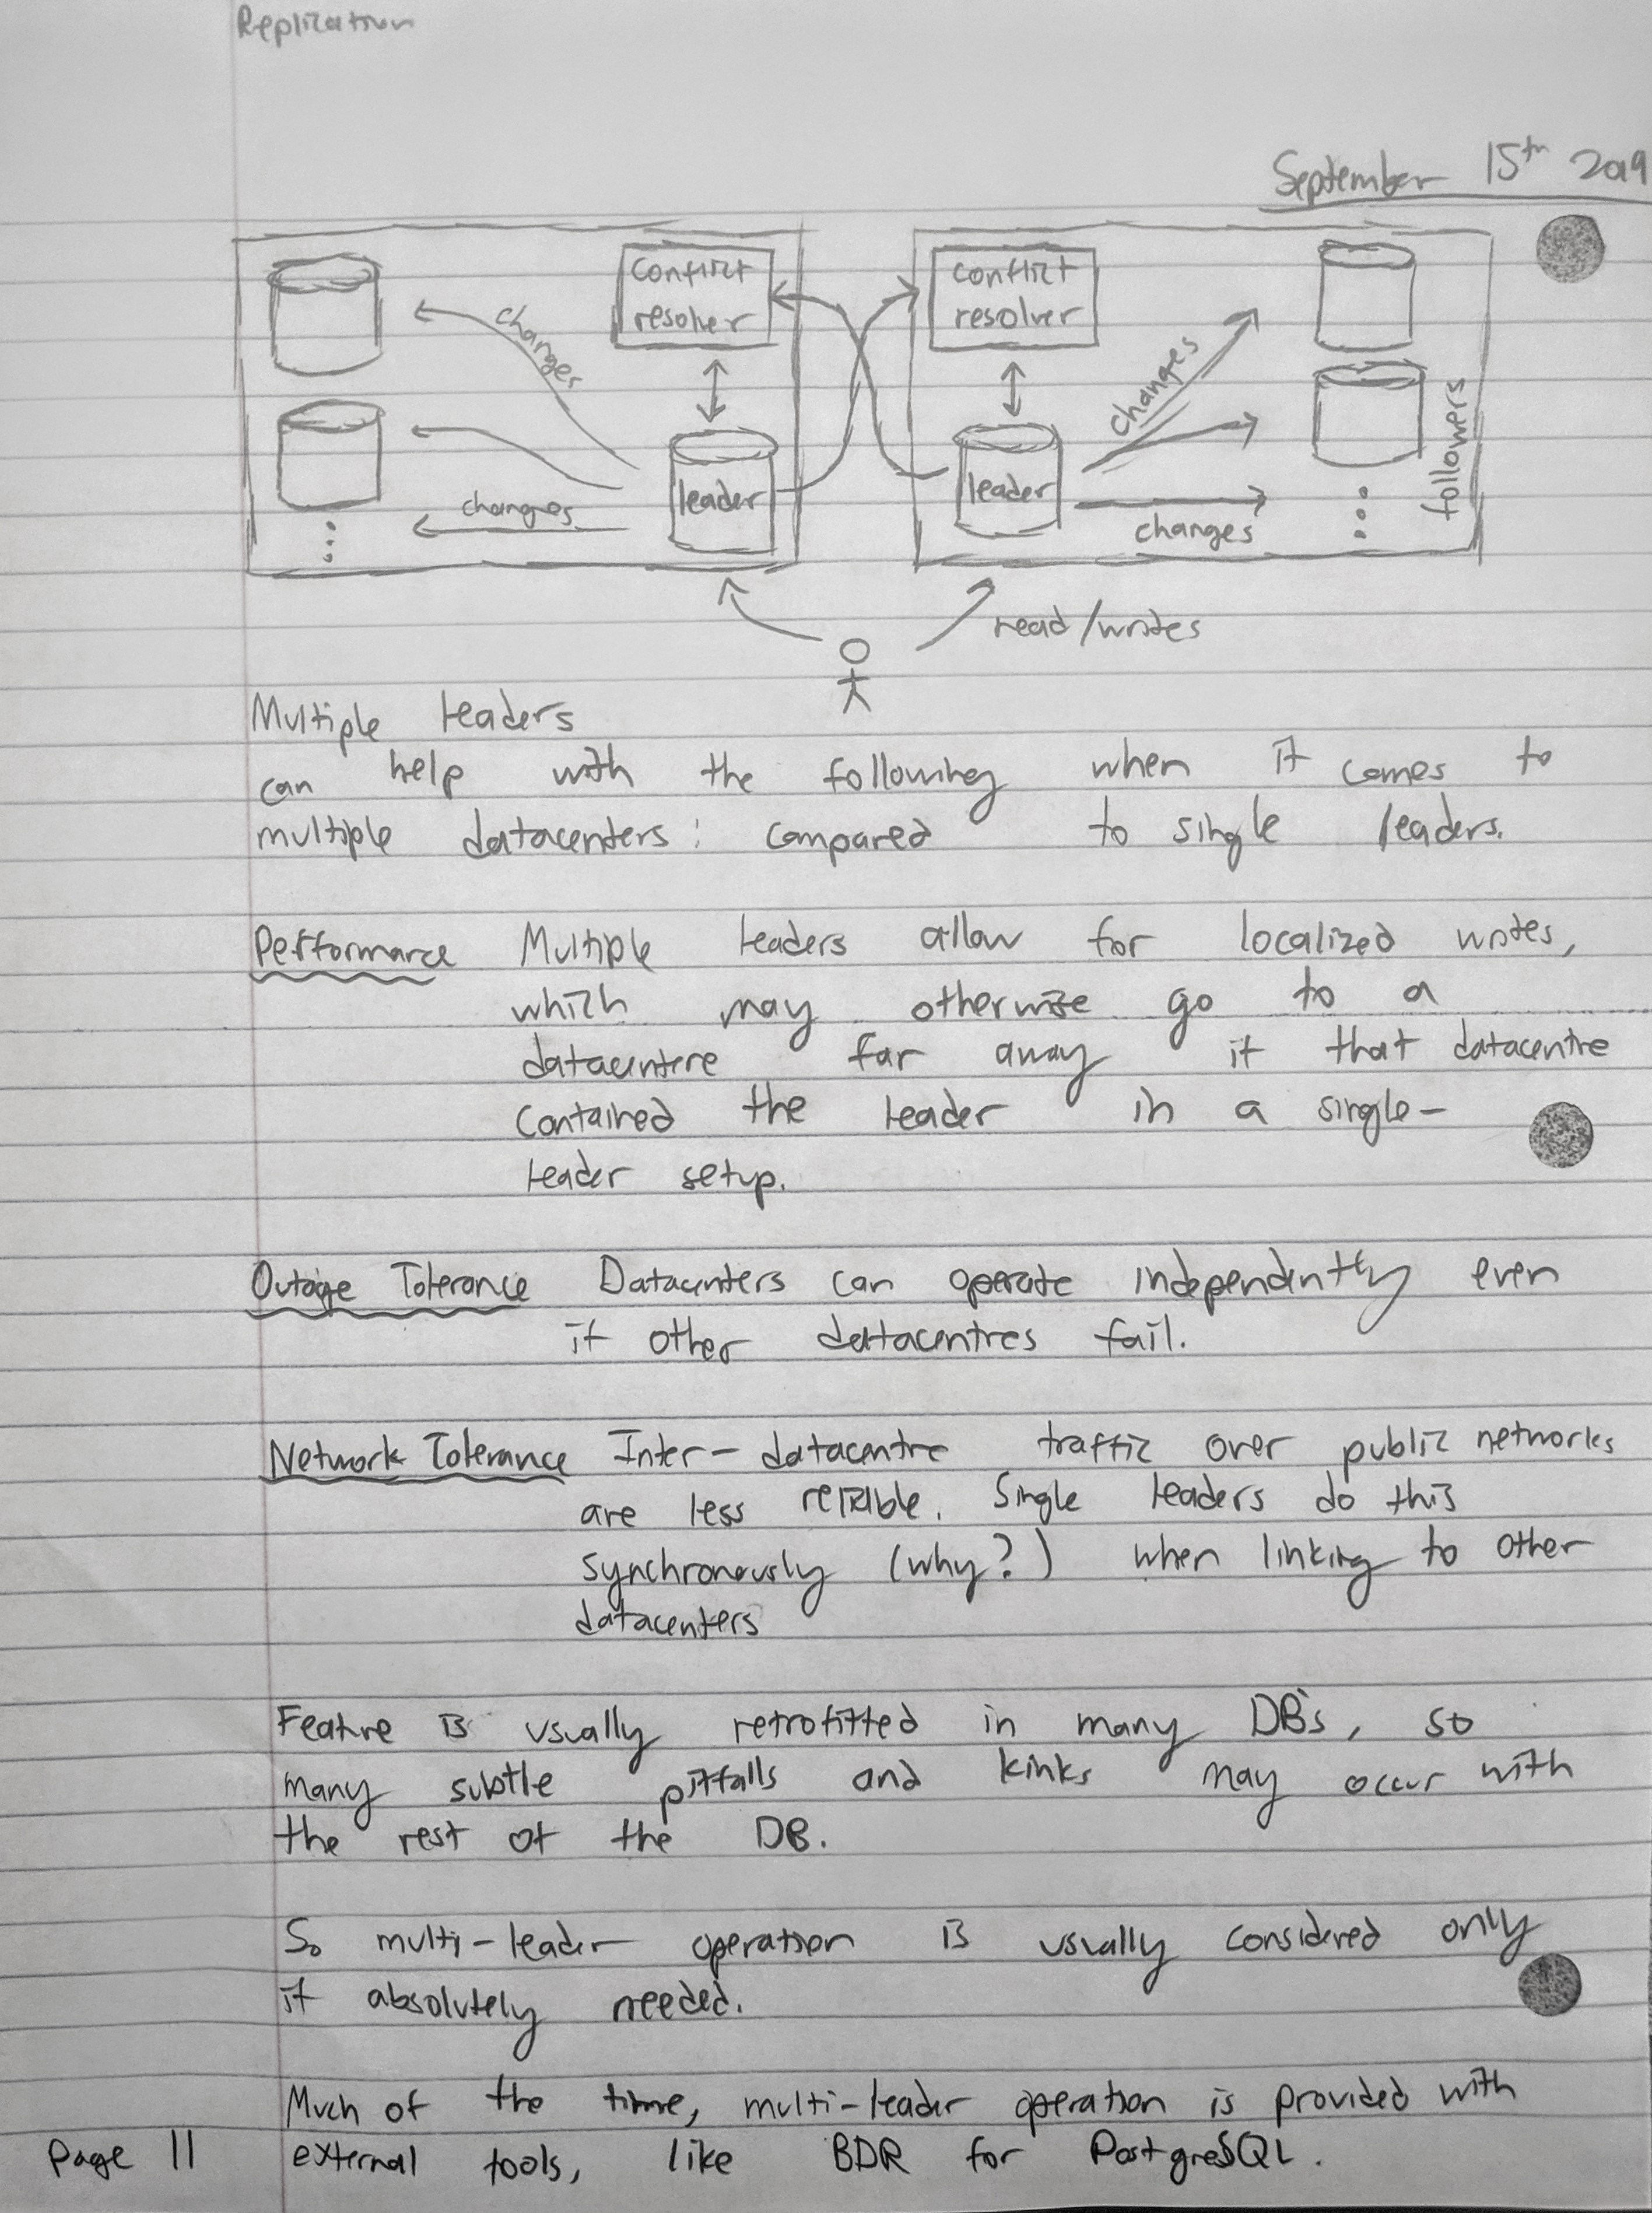 Replication
September 15th 2019
conflict
resolver
conflict
resolver
changes
changes
leader
leader
followers
changes
changes
read/writes
Multiple leaders
can help with the following when it comes to
multiple datacenters: compared to single leaders.
Performance Multiple leaders allow for localized writes,
which may otherwise go to a
datacentere far away if that datacentre
contained the leader in a single-
leader setup.
Outage Tolerance Datacenters can operate independently even
if other datacentres fail.
Network Tolerance Inter-datacentre traffic over public networks
are less reliable. Single leaders do this
synchronously (why?) when linking to other
datacenters
Feature is usually retrofitted in many DB's, so
many subtle pitfalls and kinks may occur with
the rest of the DB.
So multi-leader operation is usually considered only
if absolutely needed.
Much of the time, multi-leader operation is provided with
Page 11 external tools, like BDR for PostgreSQL.